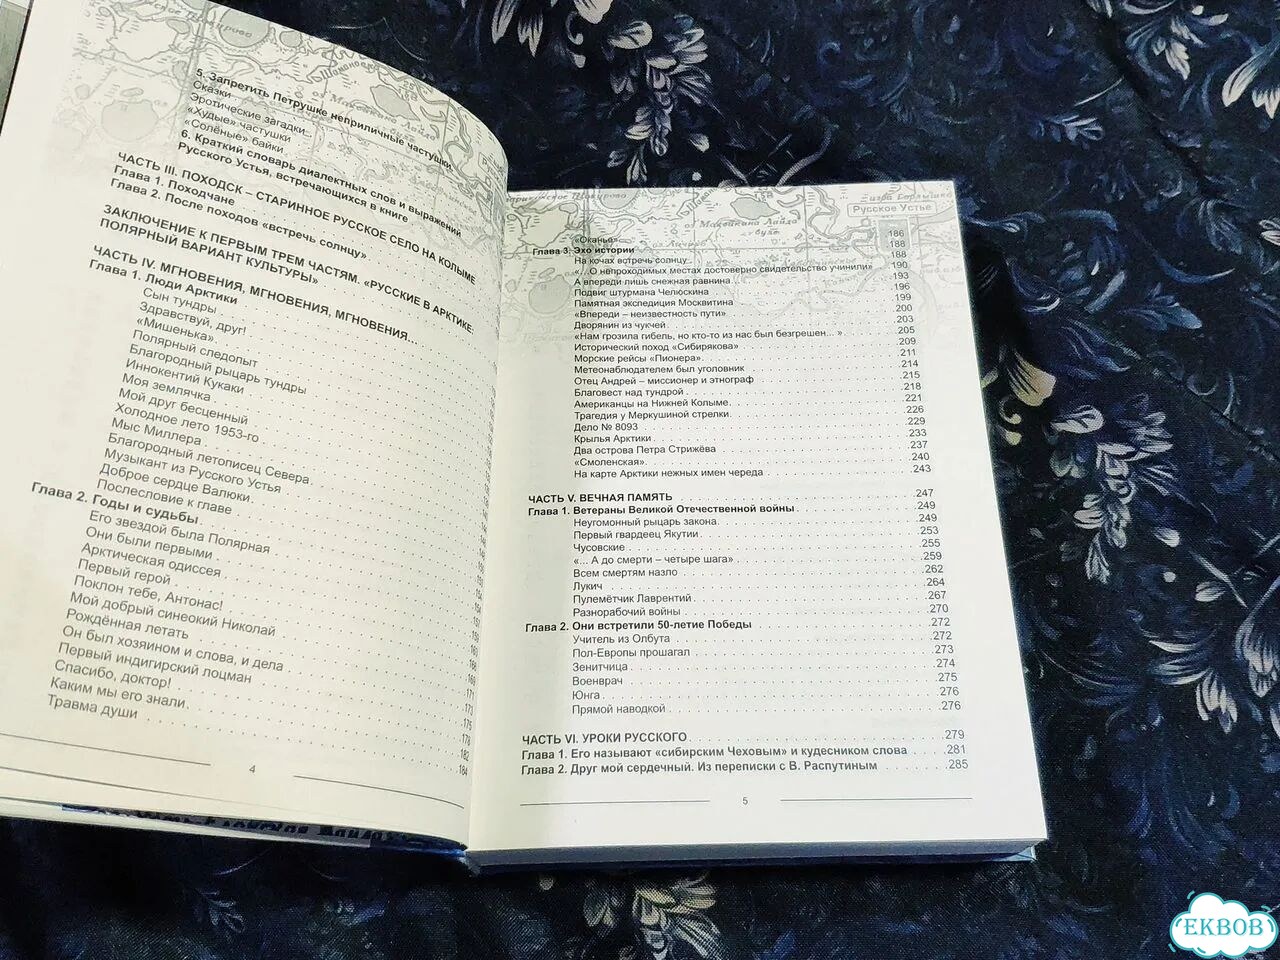 5. Запретить Петрушке неприличные частушки
Сказки
Эротические загадки
«Худые» частушки
«Солёные» байки
6. Краткий словарь диалектных слов и выражений
Русского Устья, встречающихся в книге
ЧАСТЬ III. ПОХОДСК – СТАРИННОЕ РУССКОЕ СЕЛО НА КОЛЫМЕ
Глава 1. Походчане
Глава 2. После походов «встречь солнцу»
ЗАКЛЮЧЕНИЕ К ПЕРВЫМ ТРЕМ ЧАСТЯМ. «РУССКИЕ В АРКТИКЕ:
ПОЛЯРНЫЙ ВАРИАНТ КУЛЬТУРЫ»
ЧАСТЬ IV. МГНОВЕНИЯ, МГНОВЕНИЯ, МГНОВЕНИЯ...
Глава 1. Люди Арктики
Сын тундры
Здравствуй, друг!
«Мишенька»
Полярный следопыт
Благородный рыцарь тундры
Иннокентий Кукаки
Моя землячка
Мой друг бесценный
Холодное лето 1953-го
Мыс Миллера
Благородный летописец Севера
Музыкант из Русского Устья
Доброе сердце Валюки
Послесловие к главе
Глава 2. Годы и судьбы
Его звездой была Полярная
Они были первыми
Арктическая одиссея
Первый герой
Поклон тебе, Антонас!
Мой добрый синеокий Николай
Рождённая летать
Он был хозяином и слова, и дела
Первый индигирский лоцман
Спасибо, доктор!
Каким мы его знали
Травма души 184
4
Русское Устье
«Оканье» 186
Глава 3. Эхо истории 188
На кочах встречь солнцу 188
«...О непроходимых местах достоверно свидетельство учинили» 190
А впереди лишь снежная равнина 193
Подвиг штурмана Челюскина 196
Памятная экспедиция Москвитина 199
«Впереди – неизвестность пути» 200
Дворянин из чукчей 203
«Нам грозила гибель, но кто-то из нас был безгрешен...» 205
Исторический поход «Сибирякова» 209
Морские рейсы «Пионера» 211
Метеонаблюдателем был уголовник 214
Отец Андрей – миссионер и этнограф 215
Благовест над тундрой 218
Американцы на Нижней Колыме 221
Трагедия у Меркушиной стрелки 226
Дело № 8093 229
Крылья Арктики 233
Два острова Петра Стрижёва 237
«Смоленская» 240
На карте Арктики нежных имен череда 243
ЧАСТЬ V. ВЕЧНАЯ ПАМЯТЬ 247
Глава 1. Ветераны Великой Отечественной войны 249
Неугомонный рыцарь закона 249
Первый гвардеец Якутии 253
Чусовские 255
«... А до смерти – четыре шага» 259
Всем смертям назло 262
Лукич 264
Пулемётчик Лаврентий 267
Разнорабочий войны 270
Глава 2. Они встретили 50-летие Победы 272
Учитель из Олбута 272
Пол-Европы прошагал 273
Зенитчица 274
Военврач 275
Юнга 276
Прямой наводкой 276
ЧАСТЬ VI. УРОКИ РУССКОГО 279
Глава 1. Его называют «сибирским Чеховым» и кудесником слова 281
Глава 2. Друг мой сердечный. Из переписки с В. Распутиным 285
5
EKBOB